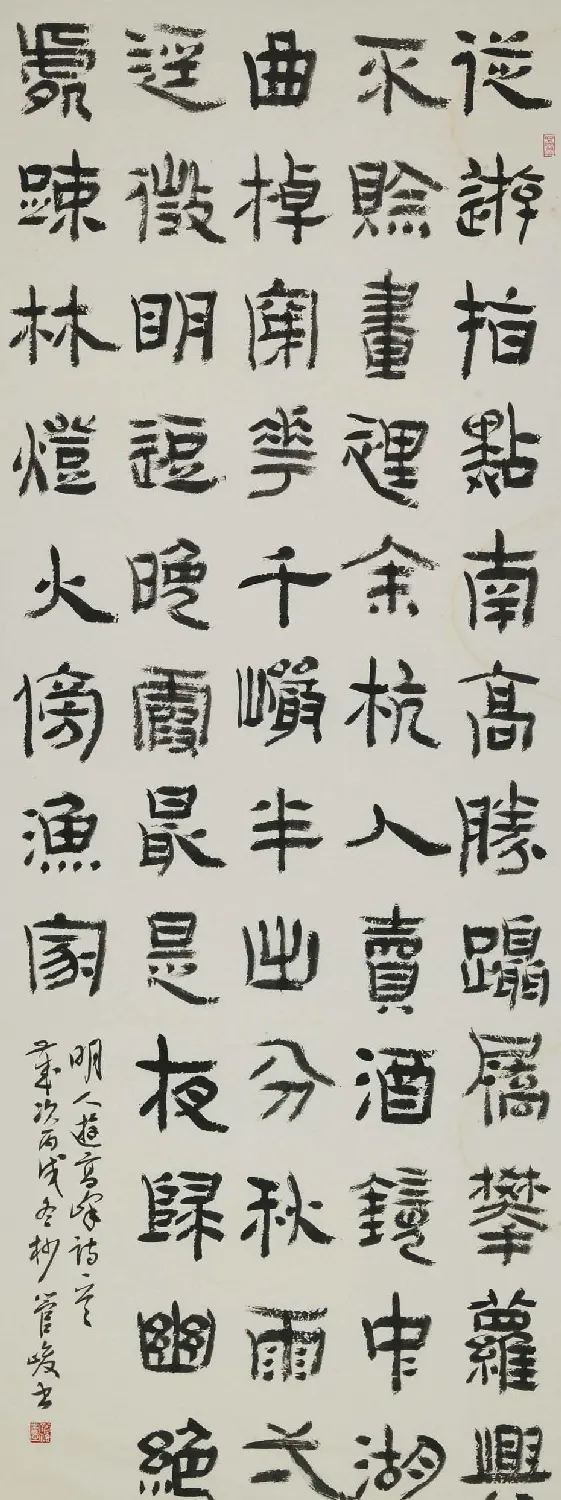 從遊指點南高勝躡屩攀蘿興
不賒畫裡余杭人賣酒鏡中湖
曲棹穿花千巖半出分秋雨弌
逕微明逗晚霞最是夜歸幽絕
處踈林燈火傍漁家
明人遊高峰詩
歲次丙戌冬杪管峻書